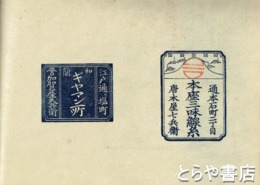 江戸通り塩町
和蘭
ギヤマン所
加賀屋久兵衛
通本石町二丁目
本座三味線糸
唐木屋七兵衛
とらや書店